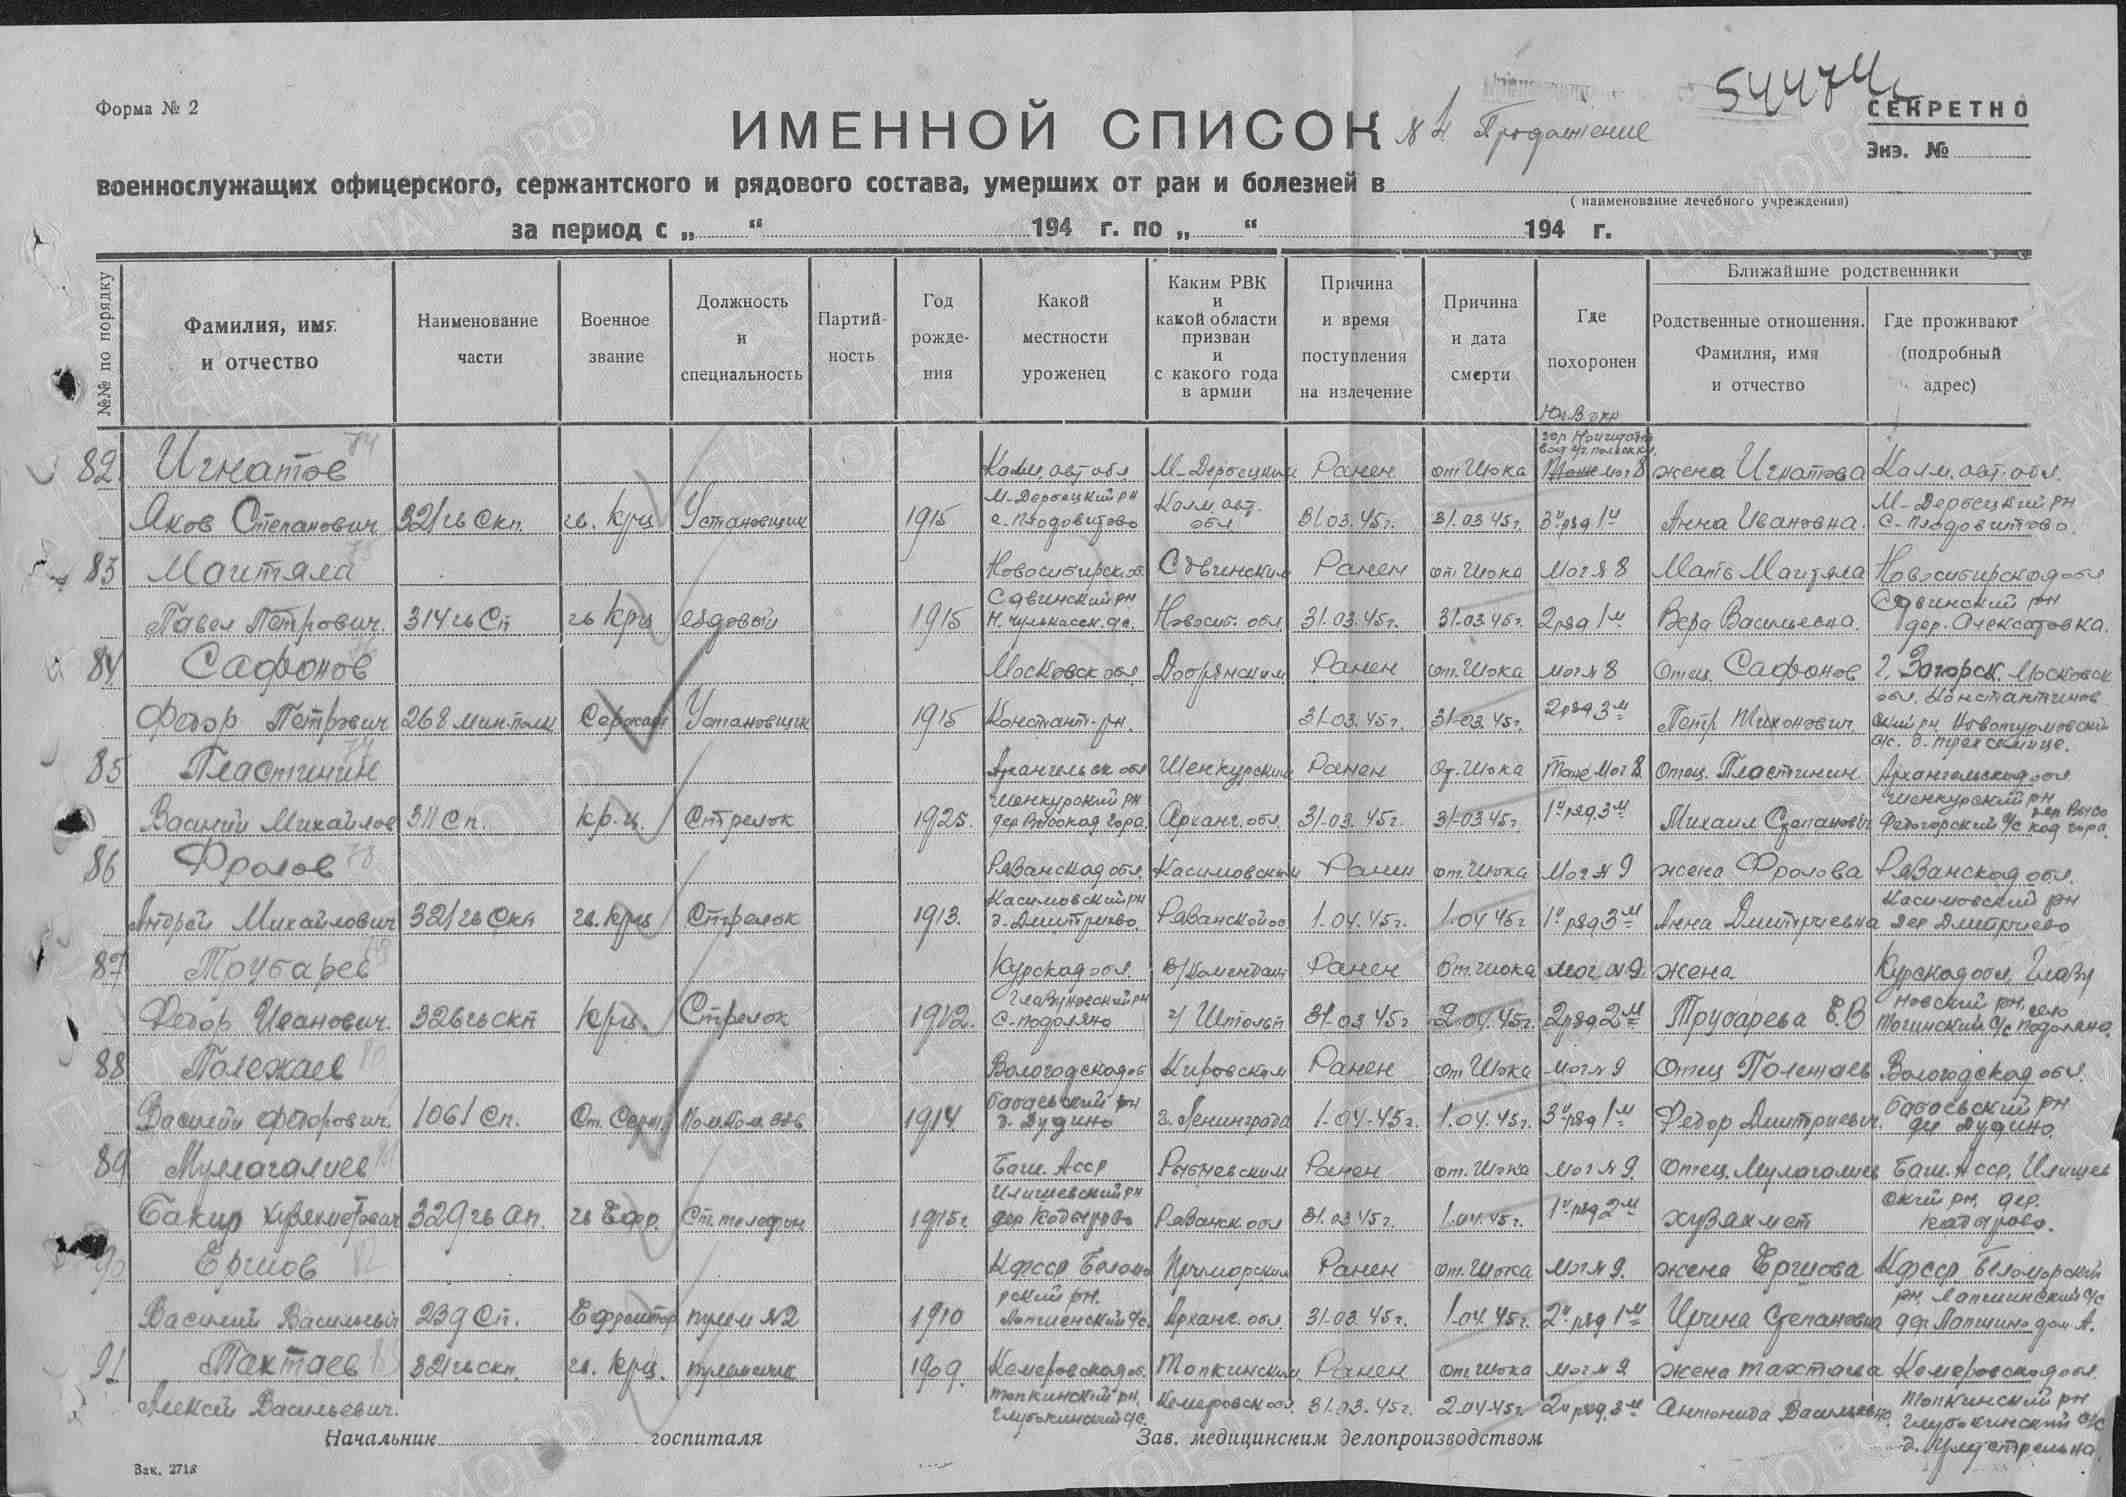 54474с
Форма № 2
СЕКРЕТНО
ИМЕННОЙ СПИСОК № 4 Продолжение
Экз. №
военнослужащих офицерского, сержантского и рядового состава, умерших от ран и болезней в
( наименование лечебного учреждения)
за период с „ “ 194 г. по „ “ 194 г.
№№ по порядку
Фамилия, имя и отчество
Наименование части
Военное звание
Должность и специальность
Партийность
Год рождения
Какой местности уроженец
Каким РВК и какой области призван и с какого года в армии
Причина и время поступления на излечение
Причина и дата смерти
Где похоронен
Ближайшие родственники
Родственные отношения. Фамилия, имя и отчество
Где проживают (подробный адрес)
82 Игнатов Калм. авт. обл. М-Дербецким Ранен от Шока мог 8 жена Игнатова Калм. авт. обл.
Яков Степанович 321 гв Скп. гв. Крц Установщик 1915 М-Дербецкий рн с. Плодовитово Калм. авт. обл 31.03.45г. 31.03.45г. 3й ряд 1м Анна Ивановна. М-Дербецкий рн с. Плодовитово.
83 Новосибирск. об. Ранен от Шока Мог № 8 Мать Новосибирская обл
Павел Петрович. 314 гв Сп гв Крц ездовой 1915 Новосиб. обл 31.03.45г. 31.03.45г. 2 ряд 1м Вера Васильевна.
84 Сафонов Московск обл Добрянским Ранен от. Шока мог № 8 Отец. Сафонов г. Загорск. Московск
Федор Петрович 268 мин. полк Сержант Установщик 1915 Констант. рн. 31.03.45г. 31.03.45г. 2 ряд 3м Петр Тихонович. обл. Константинов
85 Пластинин Архангельск обл Шенкурским Ранен От. Шока Тоже мог 8 Отец. Пластинин Архангельская обл
Василий Михайлов 311 Сп. кр-ц. Стрелок 1925. Шенкурский рн дер Высокая Гора. Арханг. обл. 31.03.45г. 31.03.45г. 1й ряд 3м Михаил Степанович Шенкурский рн дер Высокая гора.
86 Фролов Рязанская обл. Касимовским Ранен от. Шока Мог № 9 жена Фролова Рязанская обл.
Андрей Михайлович 321 гв Скп гв. крц Стрелок 1913. Касимовский рн д. Дмитриево. Рязанской об 1.04.45г. 1.04 45г 1й ряд 3м Анна Дмитриевна Касимовский рн дер Дмитриево
87 Трубарев Курская обл. Ранен от. Шока мог. № 9. жена Курская обл, Глазу
Федор Иванович. 326 гв скп крц. Стрелок 1912. Глазуновский рн С. Подоляно 31.03 45г 2.04.45г. 2 ряд 2м Трубарева Е.В новский рн, село
88 Полежаев Вологодская об Кировским Ранен от Шока мог № 9 Отец Полежаев Вологодская обл.
Василий Федорович. 1061 Сп. Ст. Серж 1914 Бабаевский рн д. Дудино г. Ленинграда 1.04.45г. 1.04.45г. 3й ряд 1м Федор Дмитриевич. Бабаевский рн дер Дудино.
89 Муллагалиев Баш. Асср Ранен от. Шока мог № 9. Отец. Мулагалиев Баш. Асср, Илишев
Бакир 329 гв ап. гв Ефр. Ст. телефон. 1915г. Илишевский рн дер Кадырово Рязанск. обл 31.03 45г. 1.04.45г. 1й ряд 2м ский рн, дер. Кадырово.
90 Ершов Кфсср Беломо Приморским Ранен от. Шока мог № 9. жена Ершова Кфсср. Беломорский
Василий Васильевич 239 Сп. Ефрейтор пулем №2 1910 рский рн. Арханг. обл. 31.03.45г. 1.04.45г. 2й ряд 1м Ирина Степановна
91 Тахтаев 321 гв скп. гв. Крц. пулеметчик 1909. Кемеровская об. Топкинским Ранен от Шока мог № 9 жена Тахтаева Кемеровская обл.
Алексей Васильевич. Топкинский рн. Глубокинский с/с. Кемеровск обл. 31.03.45г. 2.04.45г. 2й ряд 3м Антонида Васильевна Топкинский рн Глубокинский с/с
Начальник госпиталя Зав. медицинским делопроизводством
Зак. 2718